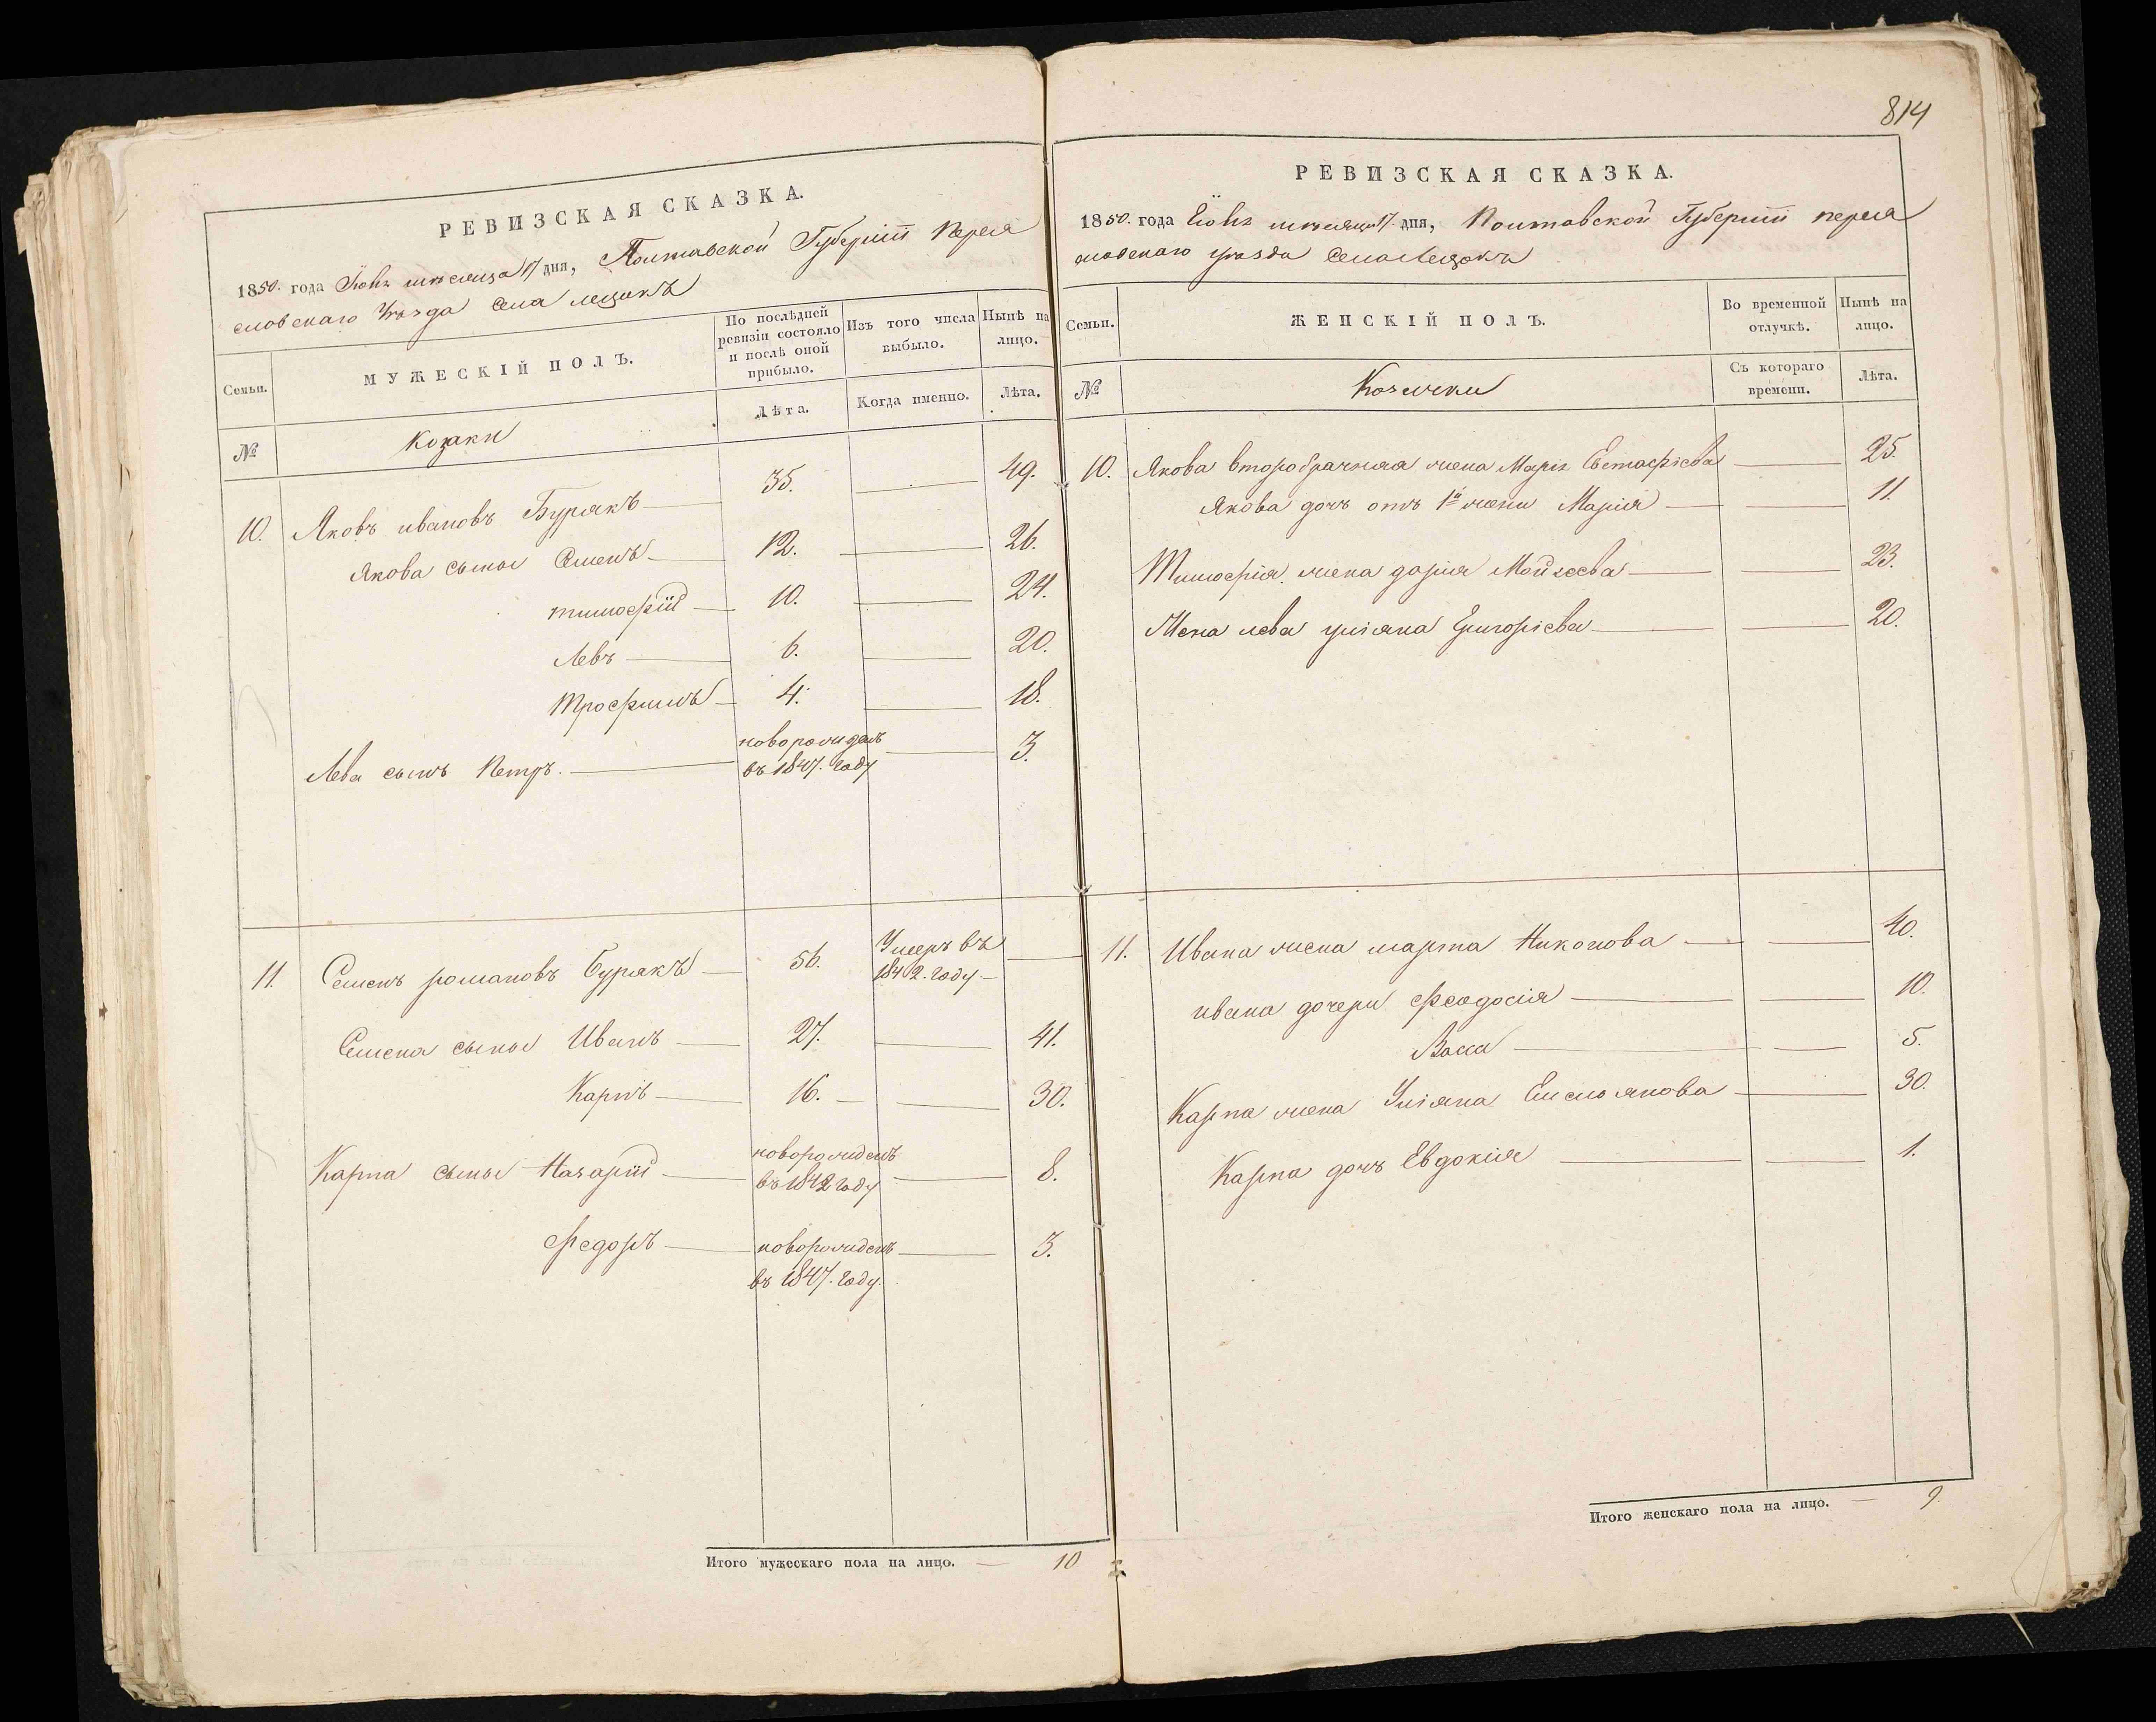 РЕВИЗСКАЯ СКАЗКА.
1850. года Іюнь месяца 17 дня, Полтавской Губерніи Перея
словскаго Уезда Села лецокъ
Семьи.
МУЖЕСКІЙ ПОЛЪ.
По послѣдней ревизіи состояло и послѣ оной прибыло.
Изъ того числа выбыло.
Нынѣ на лицо.
№
Козаки
Лѣта.
Когда именно.
Лѣта.
10. Яковъ ивановъ Бурякъ 35. 49.
Якова сыны Семенъ 12. 26.
тимофій 10. 24.
Левъ 6. 20.
Трофимъ 4. 18.
Лева сынъ Петръ. новорожденъ въ 1847. году 3.
11. Семенъ романовъ Бурякъ 56. Умеръ въ 1842. году
Семена сыны Иванъ 27. 41.
Карпъ 16. 30.
Карпа сыны Назарій новорожденъ въ 1842 году 8.
Федоръ новорожденъ въ 1847. году. 3.
Итого мужескаго пола на лицо. 10
814
РЕВИЗСКАЯ СКАЗКА.
1850. года месяца 17. дня, Полтавской Губерніи перея
словскаго уезда Села Лецокъ
Семьи.
ЖЕНСКІЙ ПОЛЪ.
Во временной отлучкѣ.
Нынѣ на лицо.
№
Козачки
Съ котораго времени.
Лѣта.
10. Якова второбрачная жена Марія Евстафіева 25.
Якова дочь отъ 1й жены Марія 11.
Тимофія жена дарія Мойсеева 23.
Жена лева уліяна Григоріева 20.
11. Ивана жена марта Никонова 40.
ивана дочери Феодосія 10.
Васса 5.
Карпа жена Уліяна Емельянова 30.
Карпа дочь Евдокія 1.
Итого женскаго пола на лицо. 9